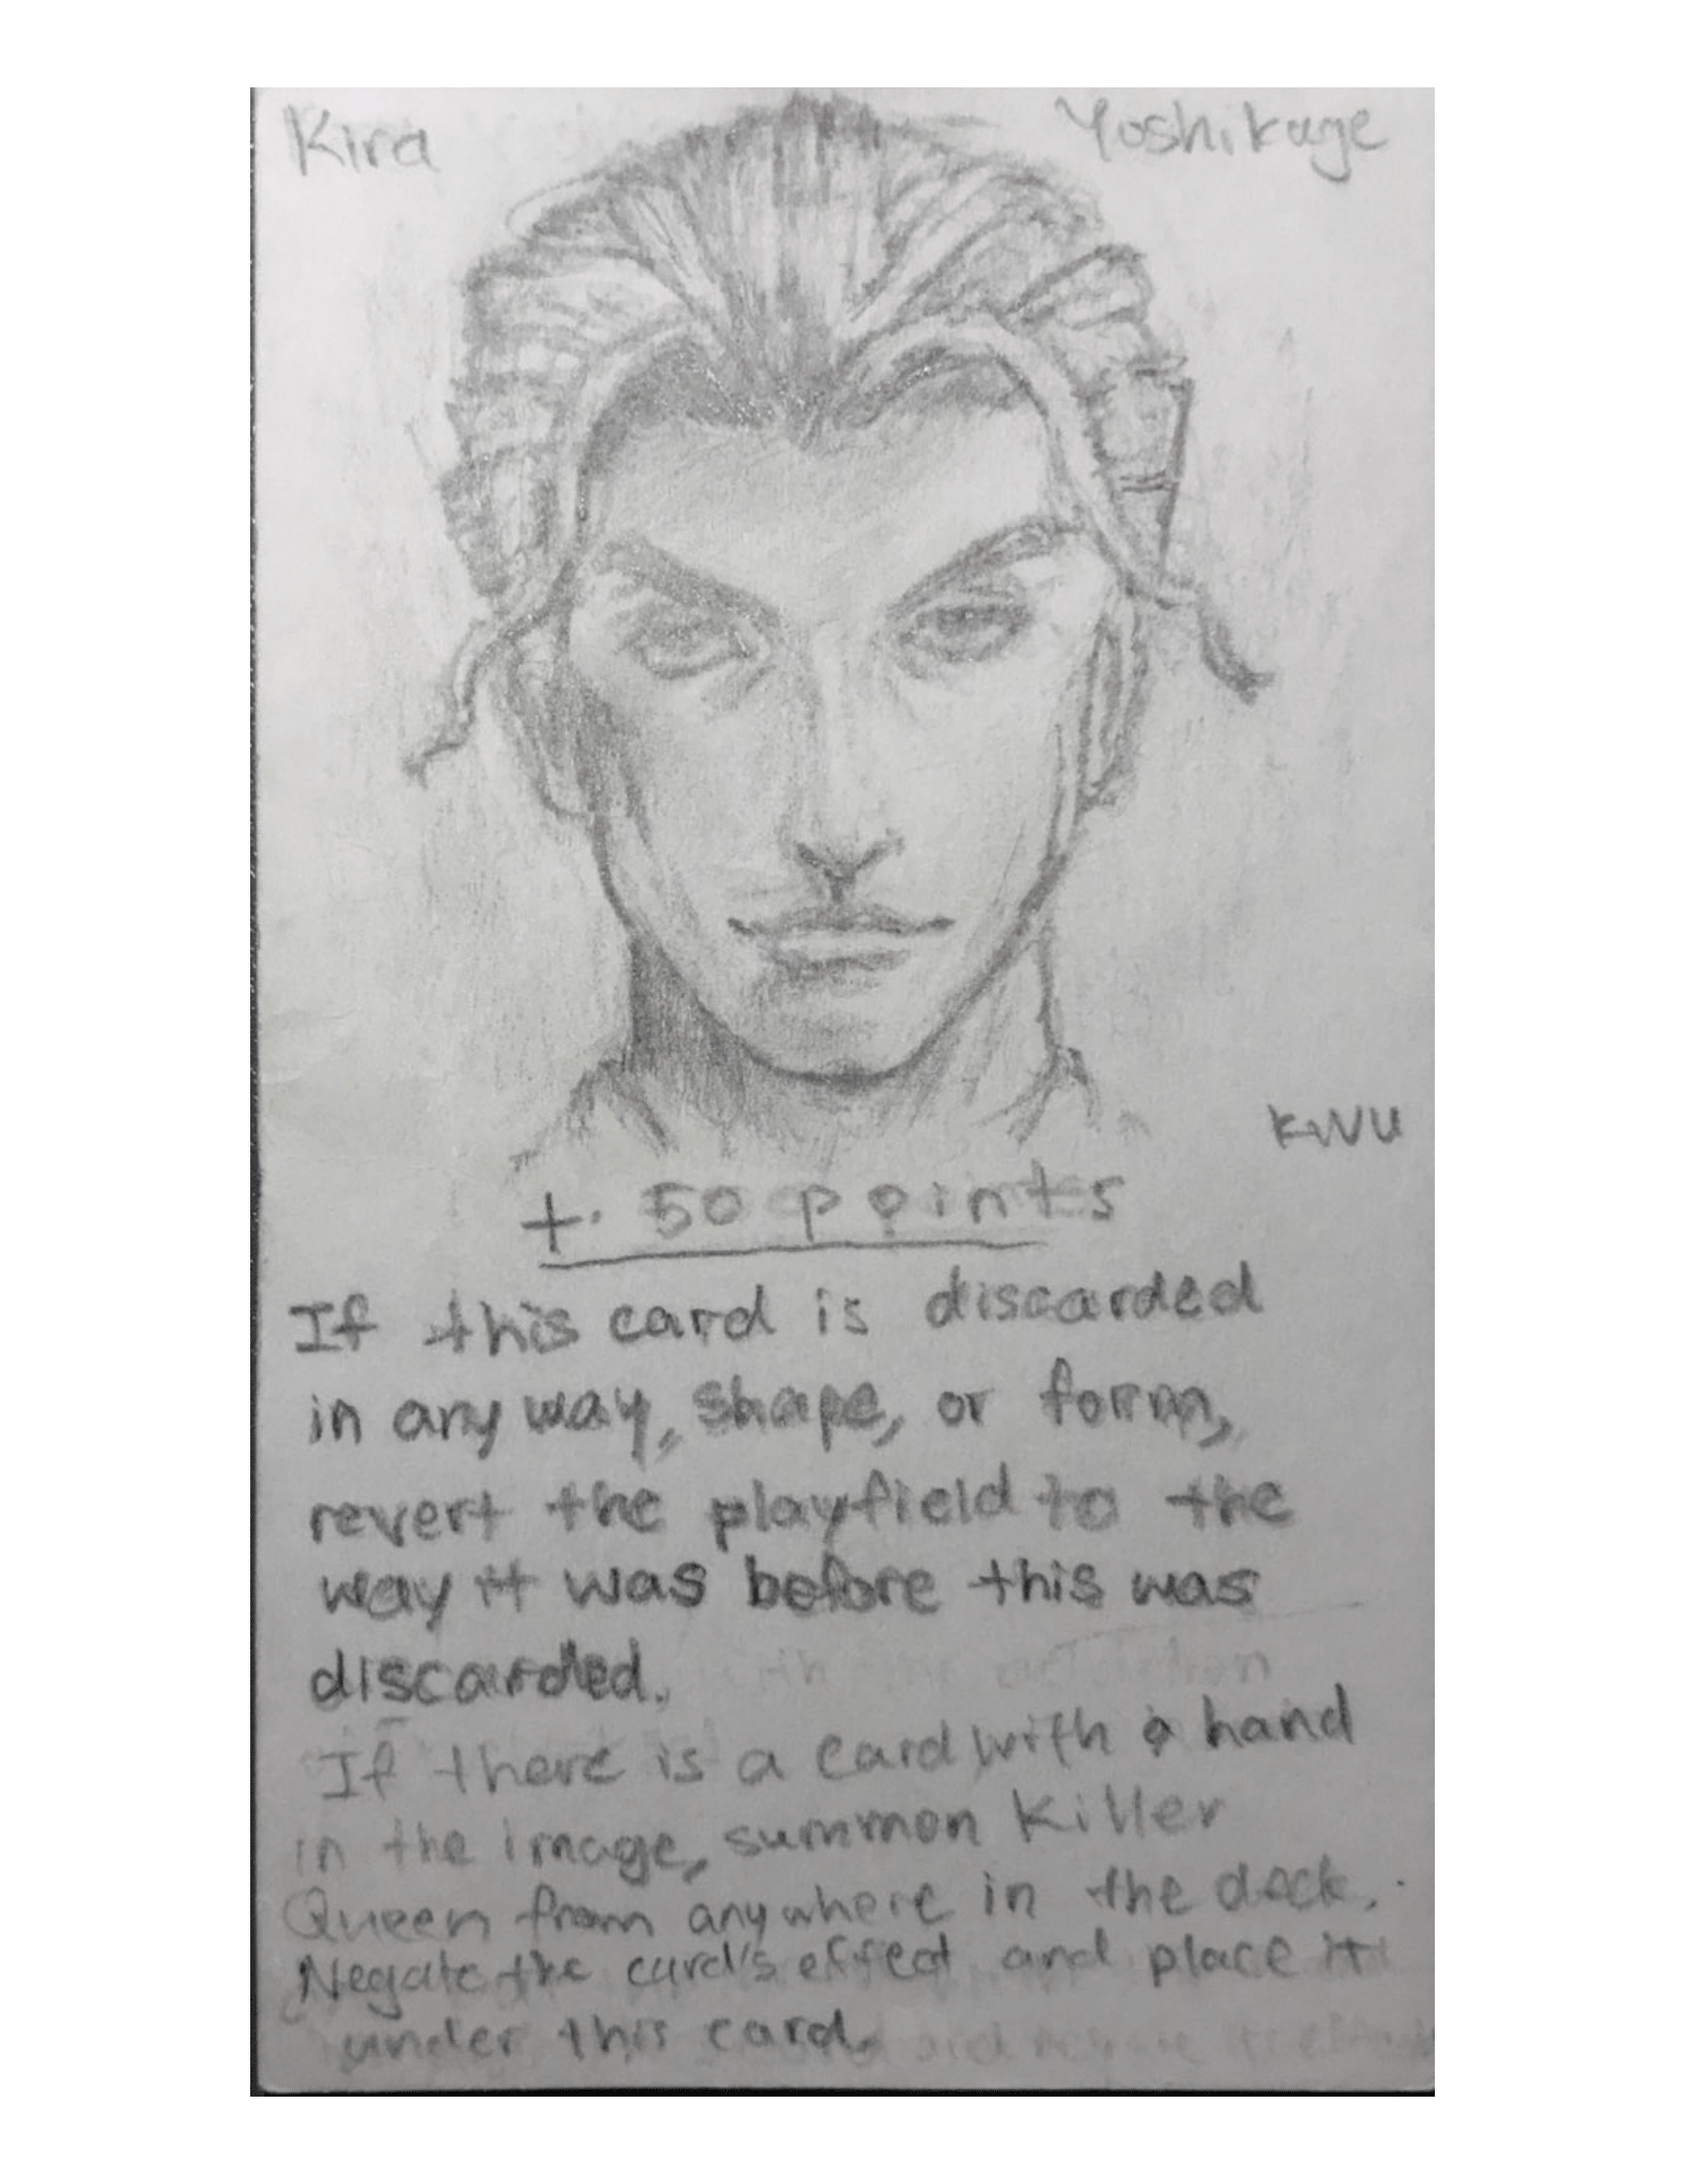 Kira Yoshikage
KWU
+. 50 points
If this card is discarded
in any way, shape, or form,
revert the playfield to the
way it was before this was
discarded.
If there is a card with a hand
in the image, summon Killer
Queen from anywhere in the deck.
Negate the card's effect and place it
under this card.